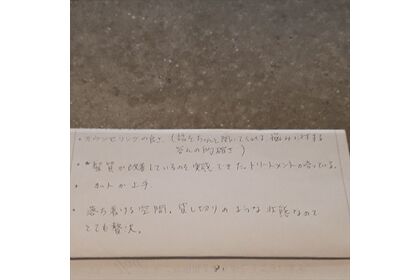 ・カウンセリングの良さ。(話をちゃんと聞いてくれる 悩みに対する
答えの的確さ)
・髪質が改善しているのを実感できた。トリートメントが合っている。
・カットが上手
・落ち着ける空間。貸し切りのような状態なので
とても贅沢。